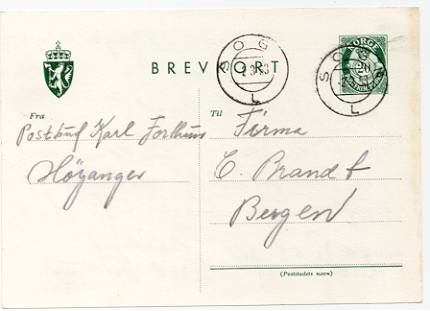 BREVKORT
SOGN
L
NORGE
20
SOGN
L
Fra
Postbud Karl
Höyanger
Til
Firma
C. Brandt
Bergen
(Poststedets navn)